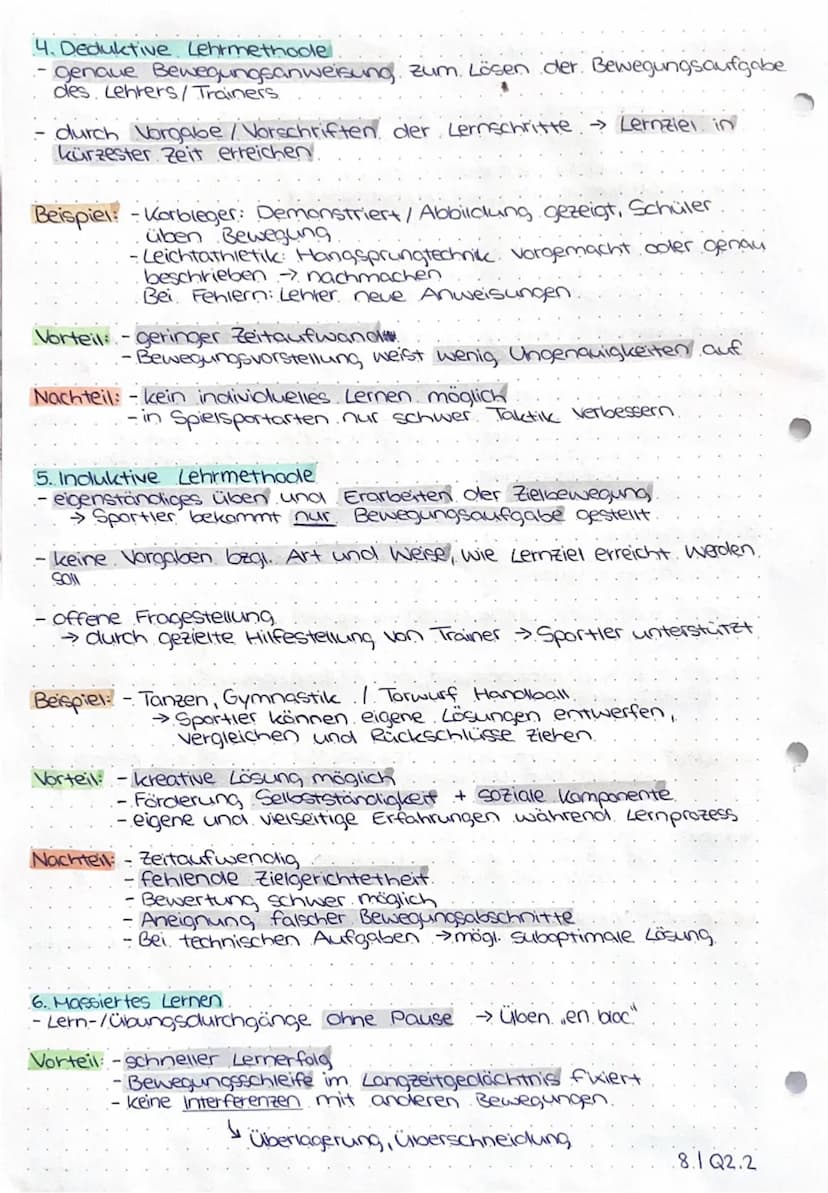 4. Deduktive Lehrmethode
- genaue Bewegungsanweisung zum Lösen der Bewegungsaufgabe
des Lehrers/Trainers
- durch Vorgabe/Vorschriften der Lernschritte → Lernziel in
kürzester Zeit erreichen
Beispiel: - Korbleger: Demonstriert/Abbildung gezeigt, Schüler
üben Bewegung
- Leichtathletik: Hangsprungtechnik vorgemacht oder genau
beschrieben → nachmachen
Bei Fehlern: Lehrer neue Anweisungen
Vorteil: - geringer Zeitaufwand
- Bewegungsvorstellung weißt wenig Ungenauigkeiten auf
Nachteil: - kein individuelles Lernen möglich
- in Spielsportarten nur schwer Taktik verbessern
5. Induktive Lehrmethode
- eigenständiges üben und Erarbeiten der Zielbewegung
→ Sportler bekommt nur Bewegungsaufgabe gestellt
- keine Vorgaben bzgl. Art und Weise, wie Lernziel erreicht werden
soll
- offene Fragestellung
→ durch gezielte Hilfestellung von Trainer → Sportler unterstützt
Beispiel: - Tanzen, Gymnastik / Torwurf Handball
→ Sportler können eigene Lösungen entwerfen,
vergleichen und Rückschlüsse ziehen
Vorteil: - kreative Lösung möglich
- Förderung Selbstständigkeit + soziale Komponente
- eigene und vielseitige Erfahrungen während Lernprozess
Nachteil: - Zeitaufwendig
- fehlende Zielgerichtetheit
- Bewertung schwer möglich
- Aneignung falscher Bewegungsabschnitte
- Bei technischen Aufgaben → mögl. suboptimale Lösung
6. Massiertes Lernen
- Lern-/Übungsdurchgänge ohne Pause → Üben „en bloc"
Vorteil: - schneller Lernerfolg
- Bewegungsschleife im Langzeitgedächtnis fixiert
- keine Interferenzen mit anderen Bewegungen
↳ Überlagerung, Überschneidung
8.1 Q2.2